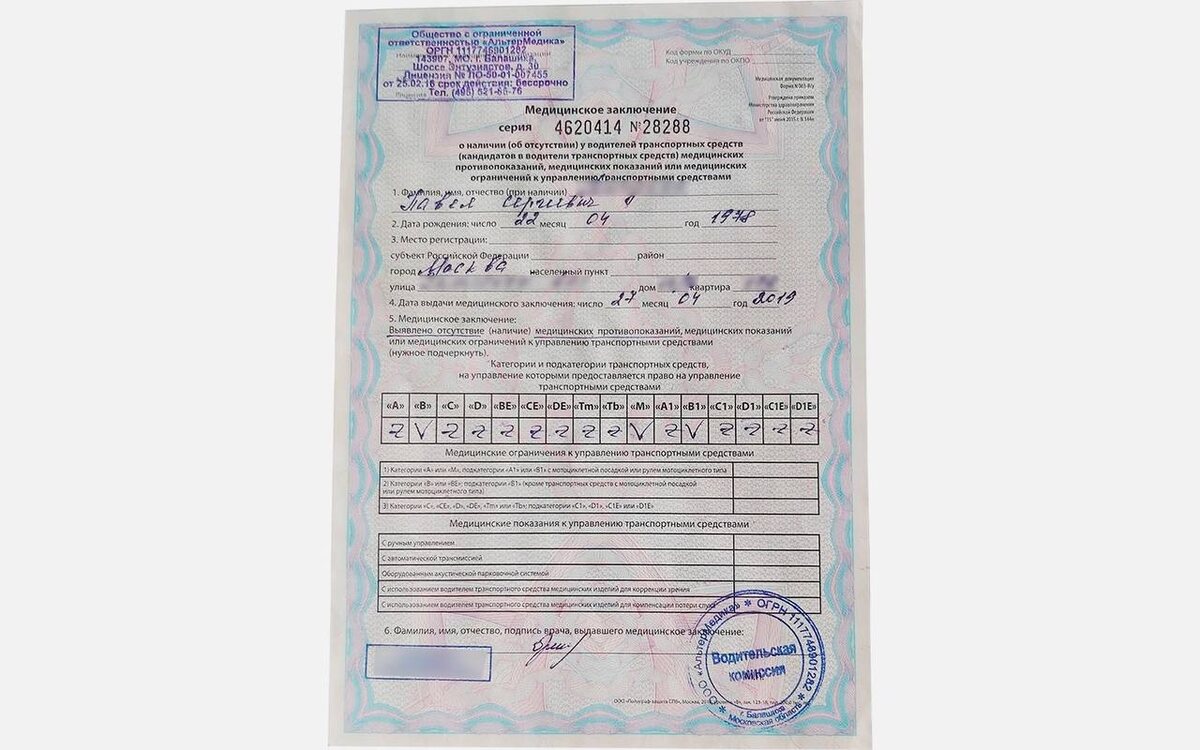 Общество с ограниченной
ответственностью «АльтерМедика»
ОГРН 1117746901282
143907, МО, г. Балашиха,
Шоссе Энтузиастов, д. 30
Лицензия № ЛО-50-01-007455
от 25.02.16 срок действия: бессрочно
Тел. (495) 521-85-76
Код формы по ОКУД
Код учреждения по ОКПО
Медицинская документация
Форма № 003-В/у
Утверждена приказом
Министерства здравоохранения
Российской Федерации
от "15" июня 2015 г. N 344н
Медицинское заключение
серия 4620414 №28288
о наличии (об отсутствии) у водителей транспортных средств
(кандидатов в водители транспортных средств) медицинских
противопоказаний, медицинских показаний или медицинских
ограничений к управлению транспортными средствами
1. Фамилия, имя, отчество (при наличии)
Павел Сергиевич
2. Дата рождения: число 22 месяц 04 год 1978
3. Место регистрации:
субъект Российской Федерации район
город Москва населенный пункт
улица дом квартира
4. Дата выдачи медицинского заключения: число 27 месяц 04 год 2019
5. Медицинское заключение:
Выявлено отсутствие (наличие) медицинских противопоказаний, медицинских показаний
или медицинских ограничений к управлению транспортными средствами
(нужное подчеркнуть).
Категории и подкатегории транспортных средств,
на управление которыми предоставляется право на управление
транспортными средствами
«A» «B» «C» «D» «BE» «CE» «DE» «Tm» «Tb» «M» «A1» «B1» «C1» «D1» «C1E» «D1E»
Z V Z Z Z Z Z Z Z V Z V Z Z Z Z
Медицинские ограничения к управлению транспортными средствами
1) Категории «A» или «M», подкатегории «A1» или «B1» с мотоциклетной посадкой или рулем мотоциклетного типа
2) Категории «B» или «BE»: подкатегории «B1» (кроме транспортных средств с мотоциклетной посадкой
или рулем мотоциклетного типа)
3) Категории «C», «CE», «D», «DE», «Tm» или «Tb»: подкатегории «C1», «D1», «C1E» или «D1E»
Медицинские показания к управлению транспортными средствами
С ручным управлением
С автоматической трансмиссией
Оборудованным акустической парковочной системой
С использованием водителем транспортного средства медицинских изделий для коррекции зрения
С использованием водителем транспортного средства медицинских изделий для компенсации потери слуха
6. Фамилия, имя, отчество, подпись врача, выдавшего медицинское заключение:
ООО «АльтерМедика» * ОГРН 1117746901282 *
Водительская
комиссия
г. Балашиха
Московская область
ООО «Полиграф-защита СПб», Москва,